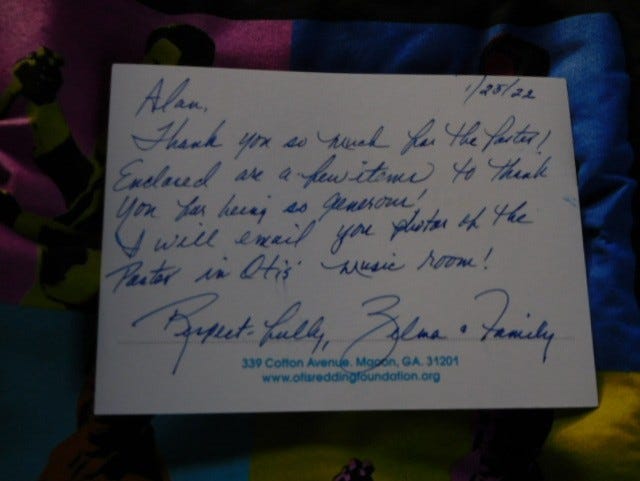 1/25/22
Alan,
Thank you so much for the Poster!
Enclosed are a few items to thank
you for being so generous!
I will email you photos of the
Poster in Otis' music room!
Respect-fully, Zelma & Family
339 Cotton Avenue, Macon, GA. 31201
www.otisreddingfoundation.org